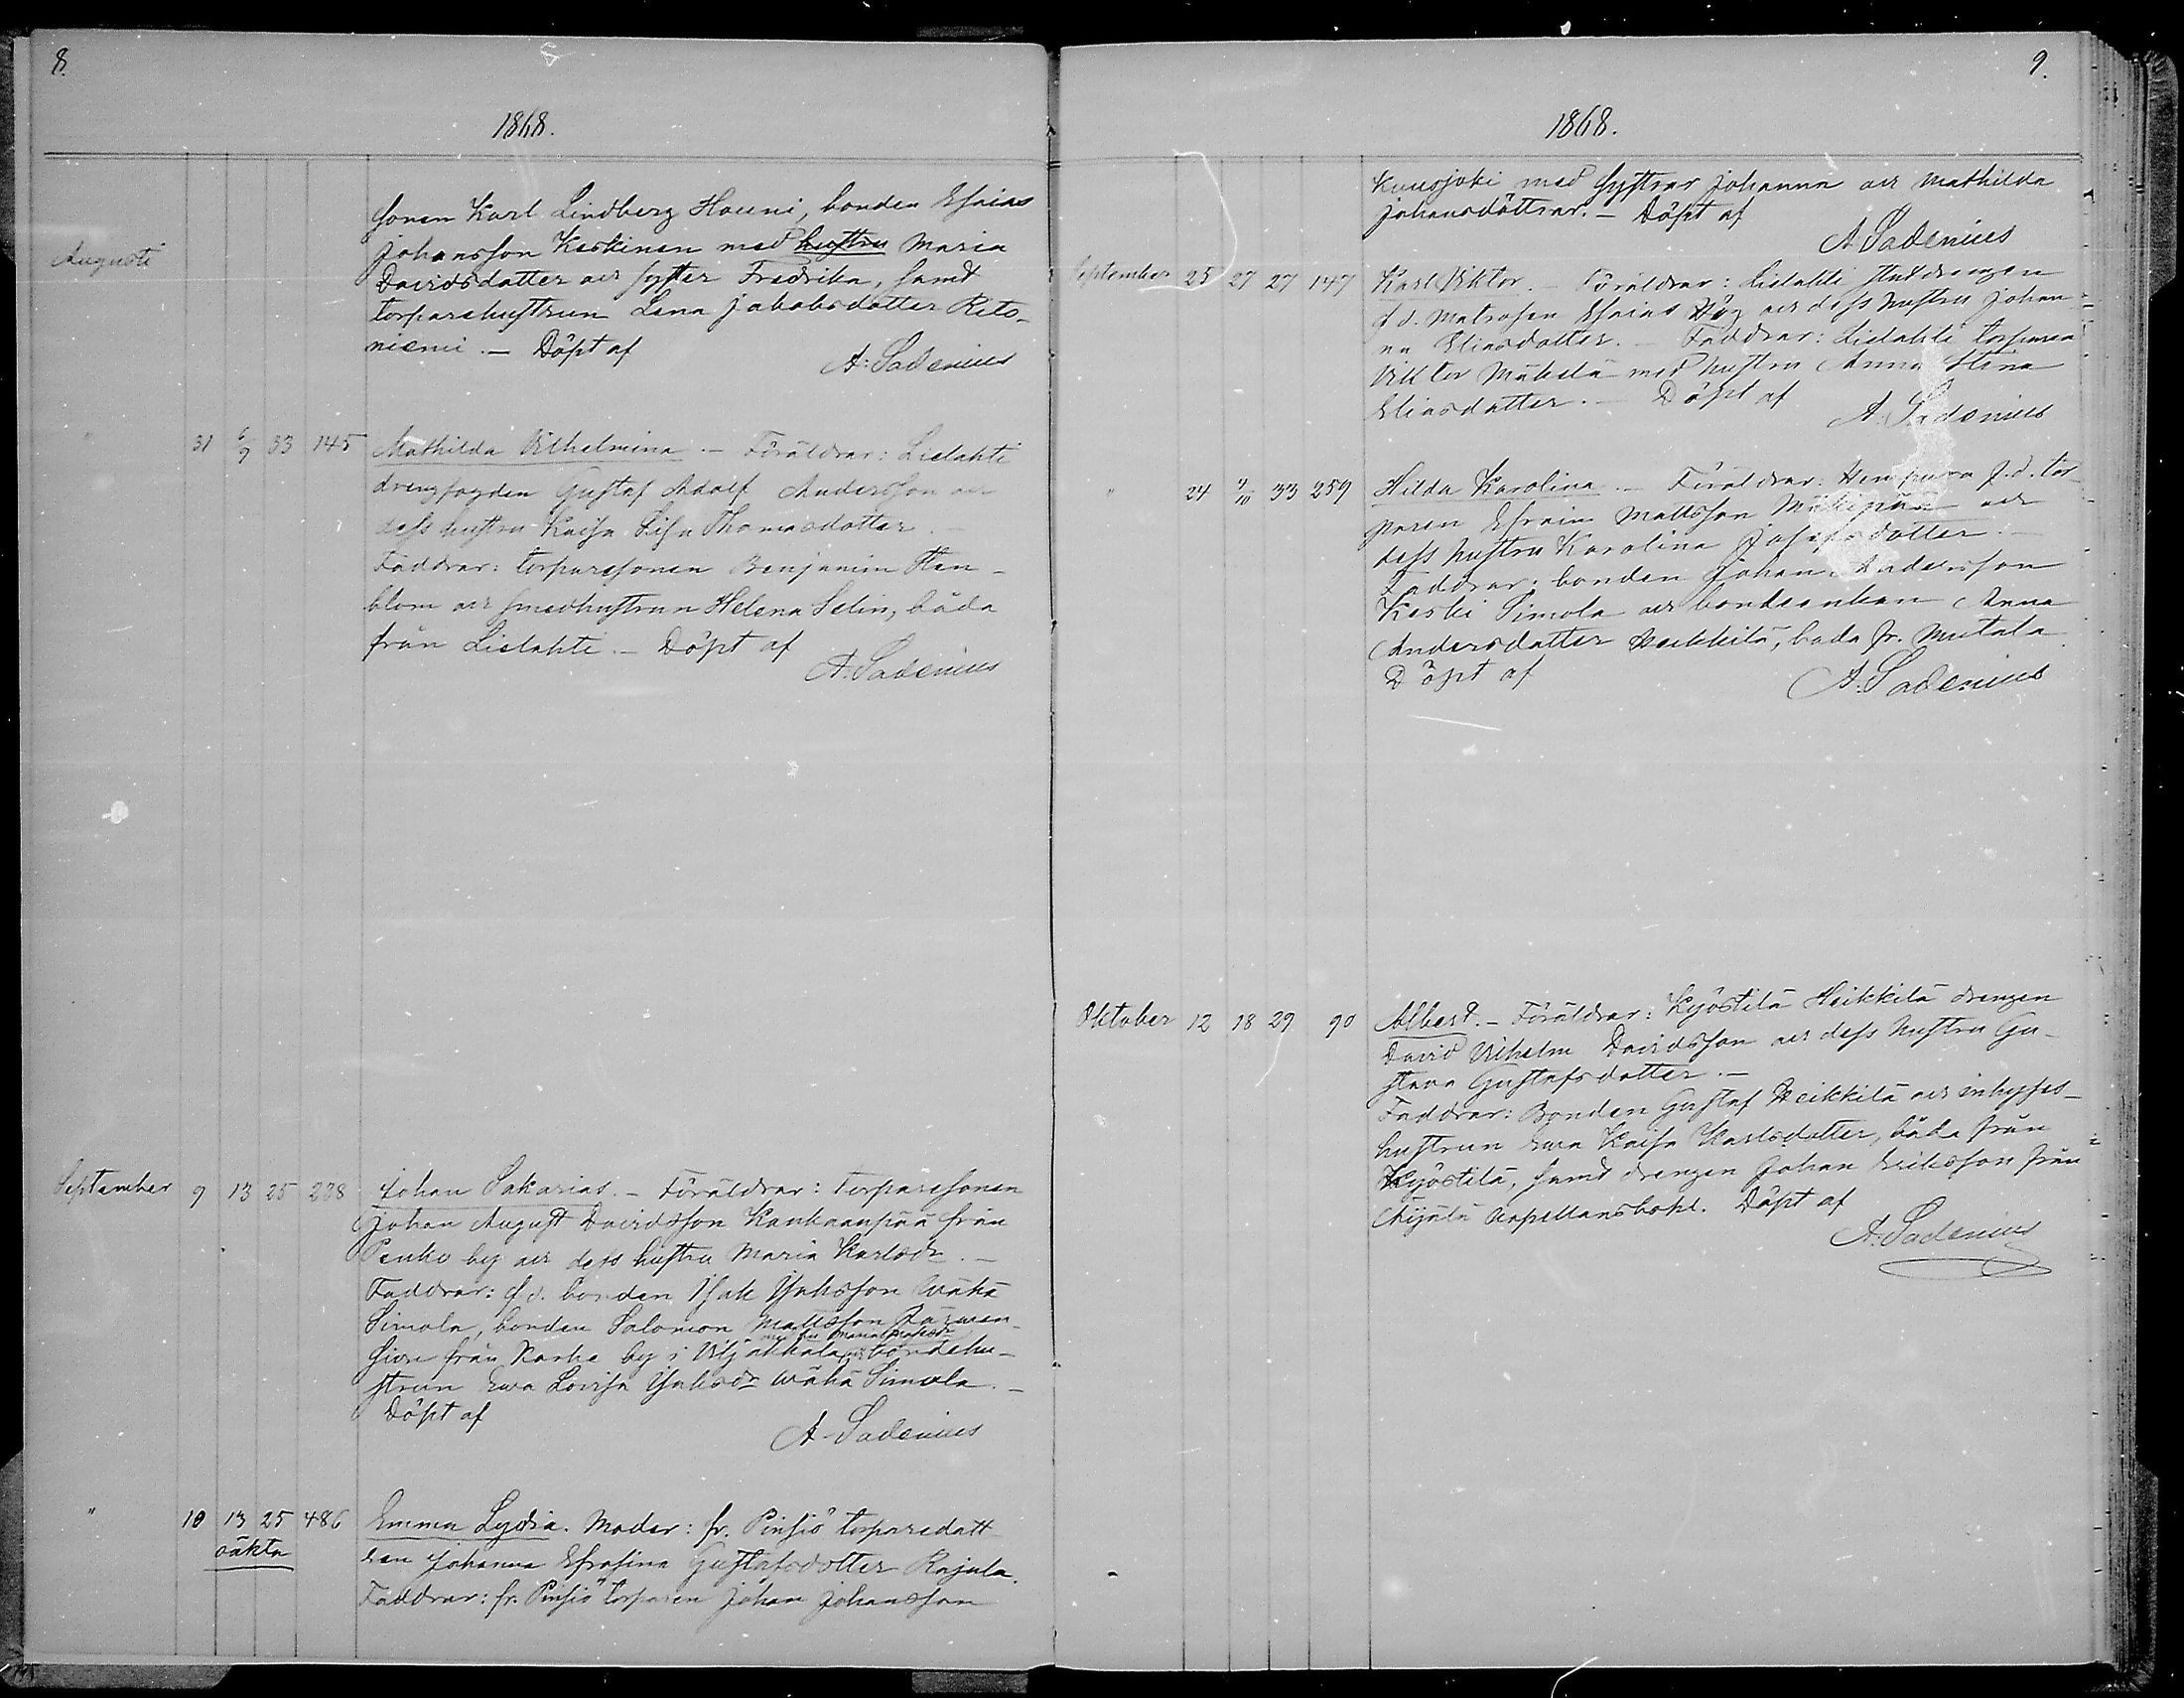 8.
1868.
Augusti
sonen Karl Lindberg Hauni, bonden Esaias
Johansson Keskinen med hustru Maria
Davidsdotter och syster Fredrika, samt
torparehustrun Lena Jakobsdotter Reto-
niemi. — Döpt af
A. Sadenius
" 31 6/9 33 145 Mathilda Vilhelmina. — Föräldrar: Lielahti
drengfogden Gustaf Adolf Andersson och
dess hustru Kaisa Lisa Thomasdotter. —
Faddrar: torparesonen Benjamin Sten-
blom och smedhustrun Helena Selin, båda
från Lielahti. — Döpt af
A. Sadenius
September 9 13 25 228 Johan Sakarias. — Föräldrar: torparesonen
Johan August Davidsson Kankaanpää från
Penho by och dess hustru Maria Karlsdr. —
Faddrar: f.d. bonden Isak Isaksson Wähä
Simola, bonden Salomon Mattsson Järwen-
sivu från Karhe by i Viljakkala och bondehu-
strun Ewa Lovisa Isaksdr Wähä Simola. —
Döpt af
A. Sadenius
" 10 13 25 486 Emma Lydia. Moder: fr. Pinsiö torparedott-
oäkta
ren Johanna Efrosina Gustafsdotter Rajala.
Faddrar: fr. Pinsiö torparen Johan Johansson
9.
1868.
Kuusjoki med systrar Johanna och Mathilda
Johansdöttrar. — Döpt af
A. Sadenius
September 25 27 27 147 Karl Viktor. — Föräldrar: Lielahti statdrengen
f.d. matrosen Esaias Hög och dess hustru Johan-
na Eliasdotter. — Faddrar: Lielahti torparen
Viktor Mäkelä med hustru Anna Stina
Eliasdotter. — Döpt af
A. Sadenius
" 24 4/10 33 259 Hilda Karolina. — Föräldrar: f.d. tor-
paren Efraim Mattsson Mäkipää och
dess hustru Karolina Josefsdotter. —
Faddrar: bonden Johan Andersson
Keski Simola och bondeenkan Anna
Andersdotter Heikkilä, båda fr. Mutala.
Döpt af
A. Sadenius
Oktober 12 18 29 90 Albert. — Föräldrar: Kyöstilä Heikkilä drengen
David Vilhelm Davidsson och dess hustru Gu-
stava Gustafsdotter. —
Faddrar: Bonden Gustaf Heikkilä och inhyses-
hustrun Ewa Kaisa Karlsdotter, båda från
Kyöstilä, samt drengen Johan Eriksson från
Kapellansbohl. Döpt af
A. Sadenius